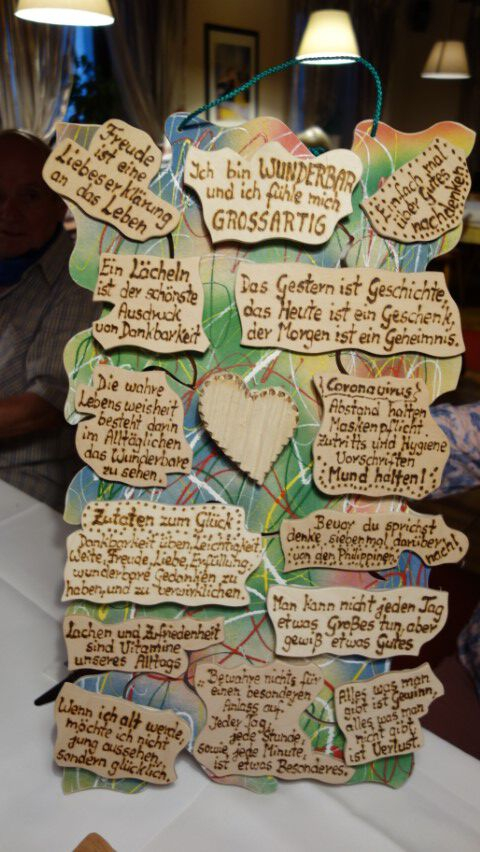 Freude
ist eine
Liebeserklärung
an das Leben
Ich bin WUNDERBAR
und ich fühle mich
GROSSARTIG
Einfach mal
über Gutes
nachdenken
Ein Lächeln
ist der schönste
Ausdruck
von Dankbarkeit
Das Gestern ist Geschichte,
das Heute ist ein Geschenk,
der Morgen ist ein Geheimnis.
Die wahre
Lebensweisheit
besteht darin
im Alltäglichen
das Wunderbare
zu sehen.
Coronavirus:
Abstand halten
Maskenpflicht
Zutritts und Hygiene
Vorschriften
Mund halten!
Zutaten zum Glück
Dankbarkeit üben, Leichtigkeit
Weite, Freude, Liebe, Erfüllung,
wunderbare Gedanken zu
haben, und zu verwirklichen.
Bevor du sprichst
denke siebenmal darüber
nach!
von den Philippinen
Man kann nicht jeden Tag
etwas Großes tun, aber
gewiß etwas Gutes
Lachen und Zufriedenheit
sind Vitamine
unseres Alltags
Bewahre nichts für
einen besonderen
Anlass auf.
Jeder Tag,
jede Stunde,
sowie jede Minute,
ist etwas Besonderes.
Alles was man
gibt ist Gewinn,
alles was man
nicht gibt
ist Verlust.
Wenn ich alt werde,
möchte ich nicht
jung aussehen,
sondern glücklich.